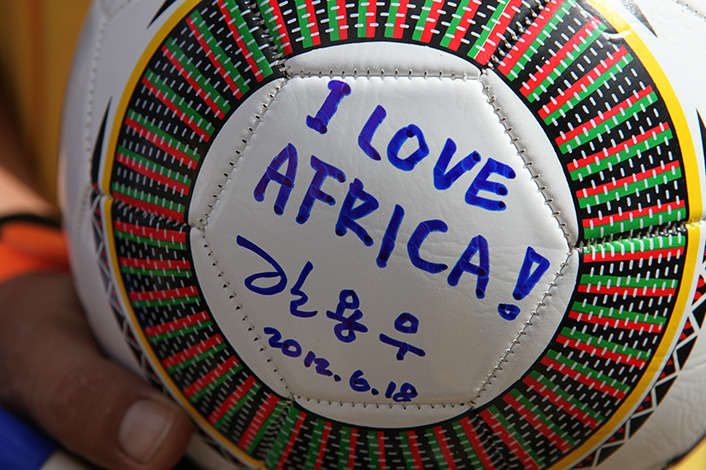 I LOVE
AFRICA!
한용우
2012.6.18